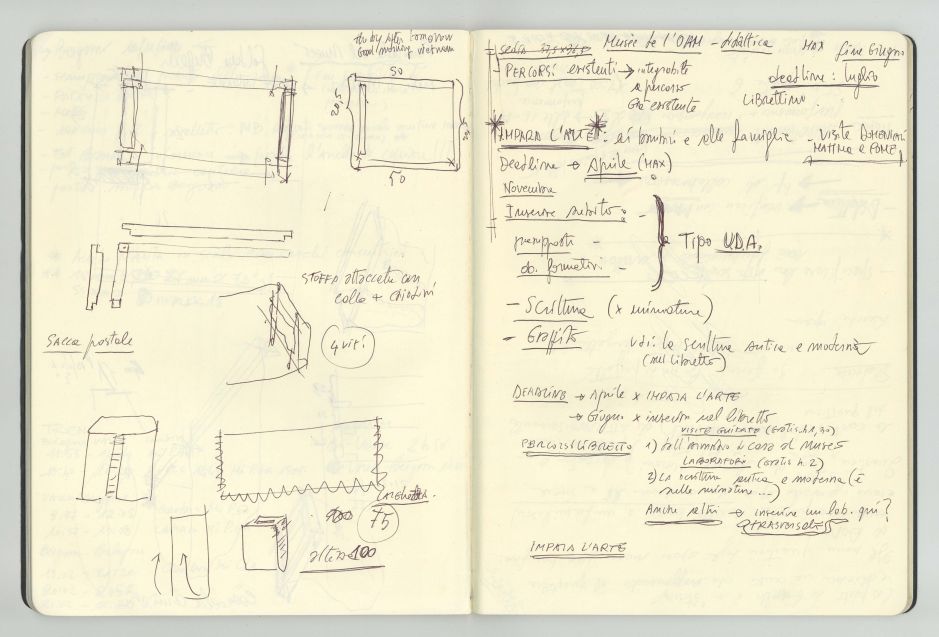 the day after tomorrow
Good morning Vietnam
50
28,5
50
STOFFA attaccata con
colla + chiodini
4 viti
SACCA postale
75
altezza 100
Musée de l'OHM - didattica
MAX fine Giugno
deadline: luglio
PERCORSI esistenti → integrabili
a percorso
già esistente
Librettino
IMPARA L'ARTE: ai bambini e alle famiglie - VISITE DOMENICALI
MATTINA E POME
Deadline → Aprile (MAX)
Novembre
Inserire subito:
presupposti -
ob. formativi -
Tipo UDA.
- Scrittura (x miniature)
- Graffito
vedi: la scrittura antica e moderna
(nel libretto)
DEADLINE → Aprile x IMPARA L'ARTE
→ Giugno x inserire nel libretto
VISITE GUIDATE (GRATIS h.1,30)
PERCORSI LIBRETTO 1) dall'armadio di casa al MUSEO
LABORATORI (GRATIS h.2)
2) La scrittura antica e moderna (e
nelle miniature...)
Anche altri → inserire un lab. qui?
IMPARA L'ARTE